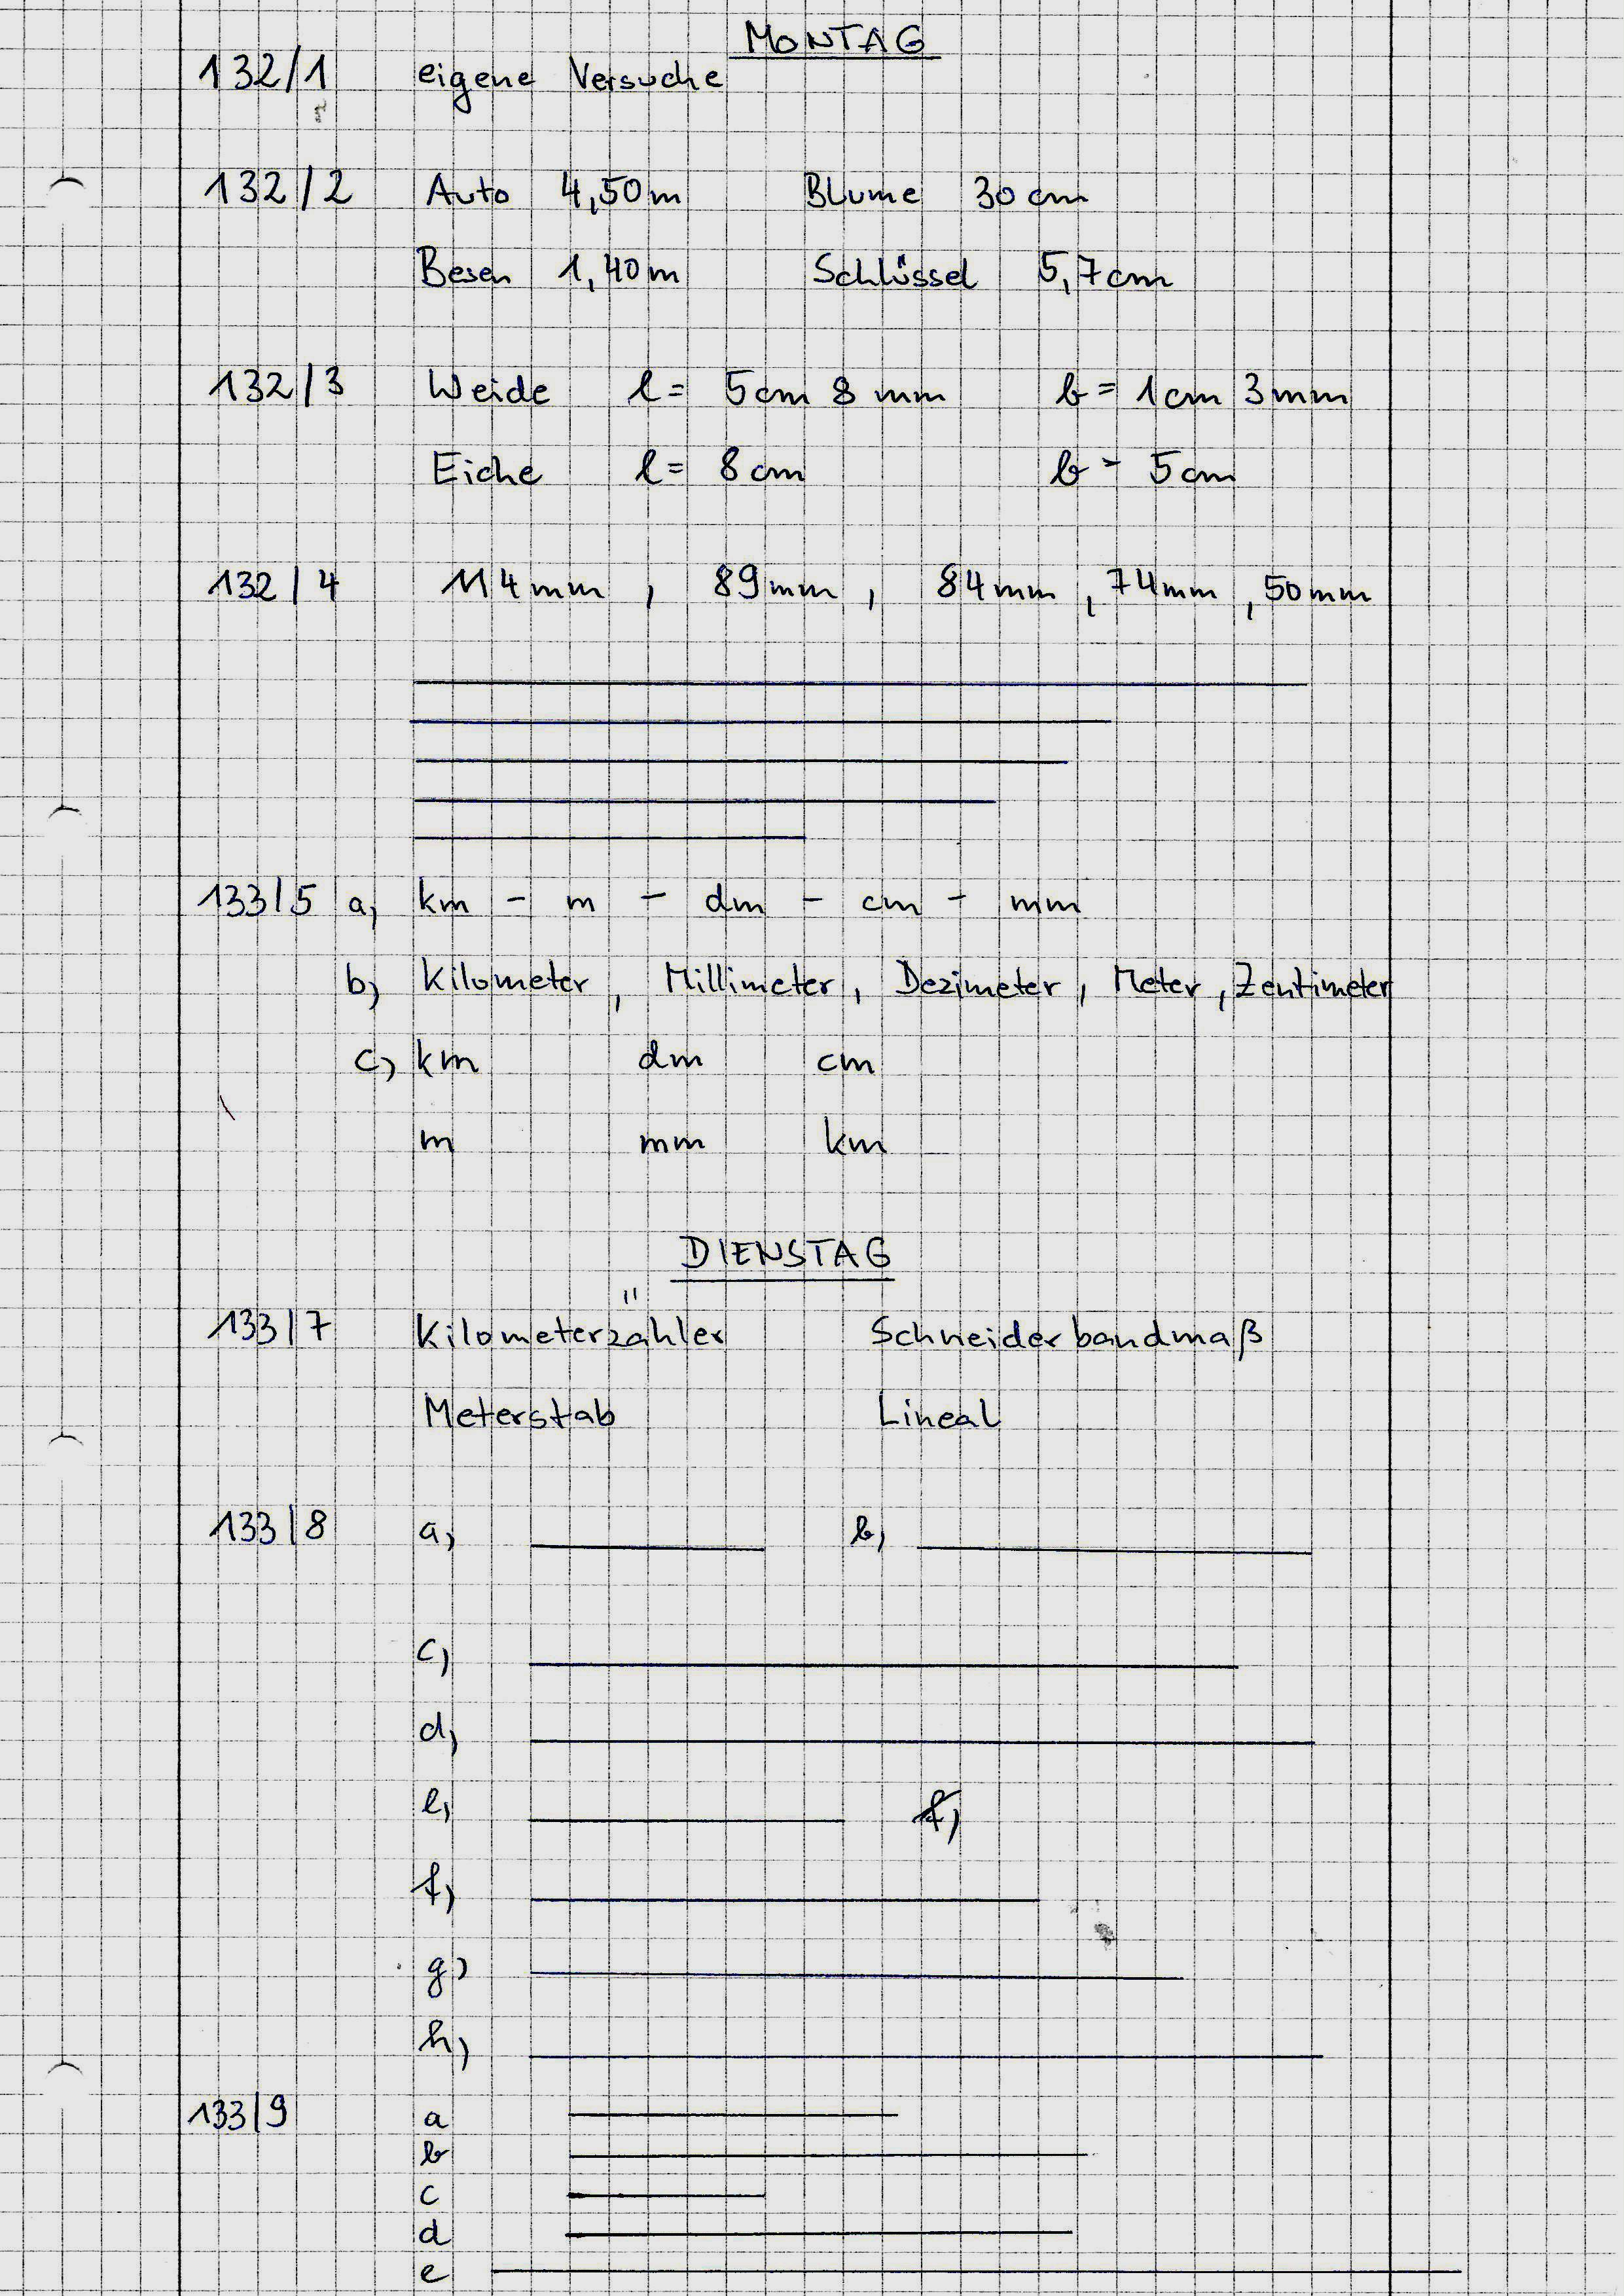 MONTAG
132/1 eigene Versuche
132/2 Auto 4,50m Blume 30cm
Besen 1,40m Schlüssel 5,7cm
132/3 Weide l= 5cm 8mm b= 1cm 3mm
Eiche l= 8cm b= 5cm
132/4 114mm, 89mm, 84mm, 74mm, 50mm
133/5 a) km - m - dm - cm - mm
b) Kilometer, Millimeter, Dezimeter, Meter, Zentimeter
c) km dm cm
m mm km
DIENSTAG
133/7 Kilometerzähler Schneiderbandmaß
Meterstab Lineal
133/8 a) b)
c)
d)
e) f)
f)
g)
h)
133/9 a
b
c
d
e